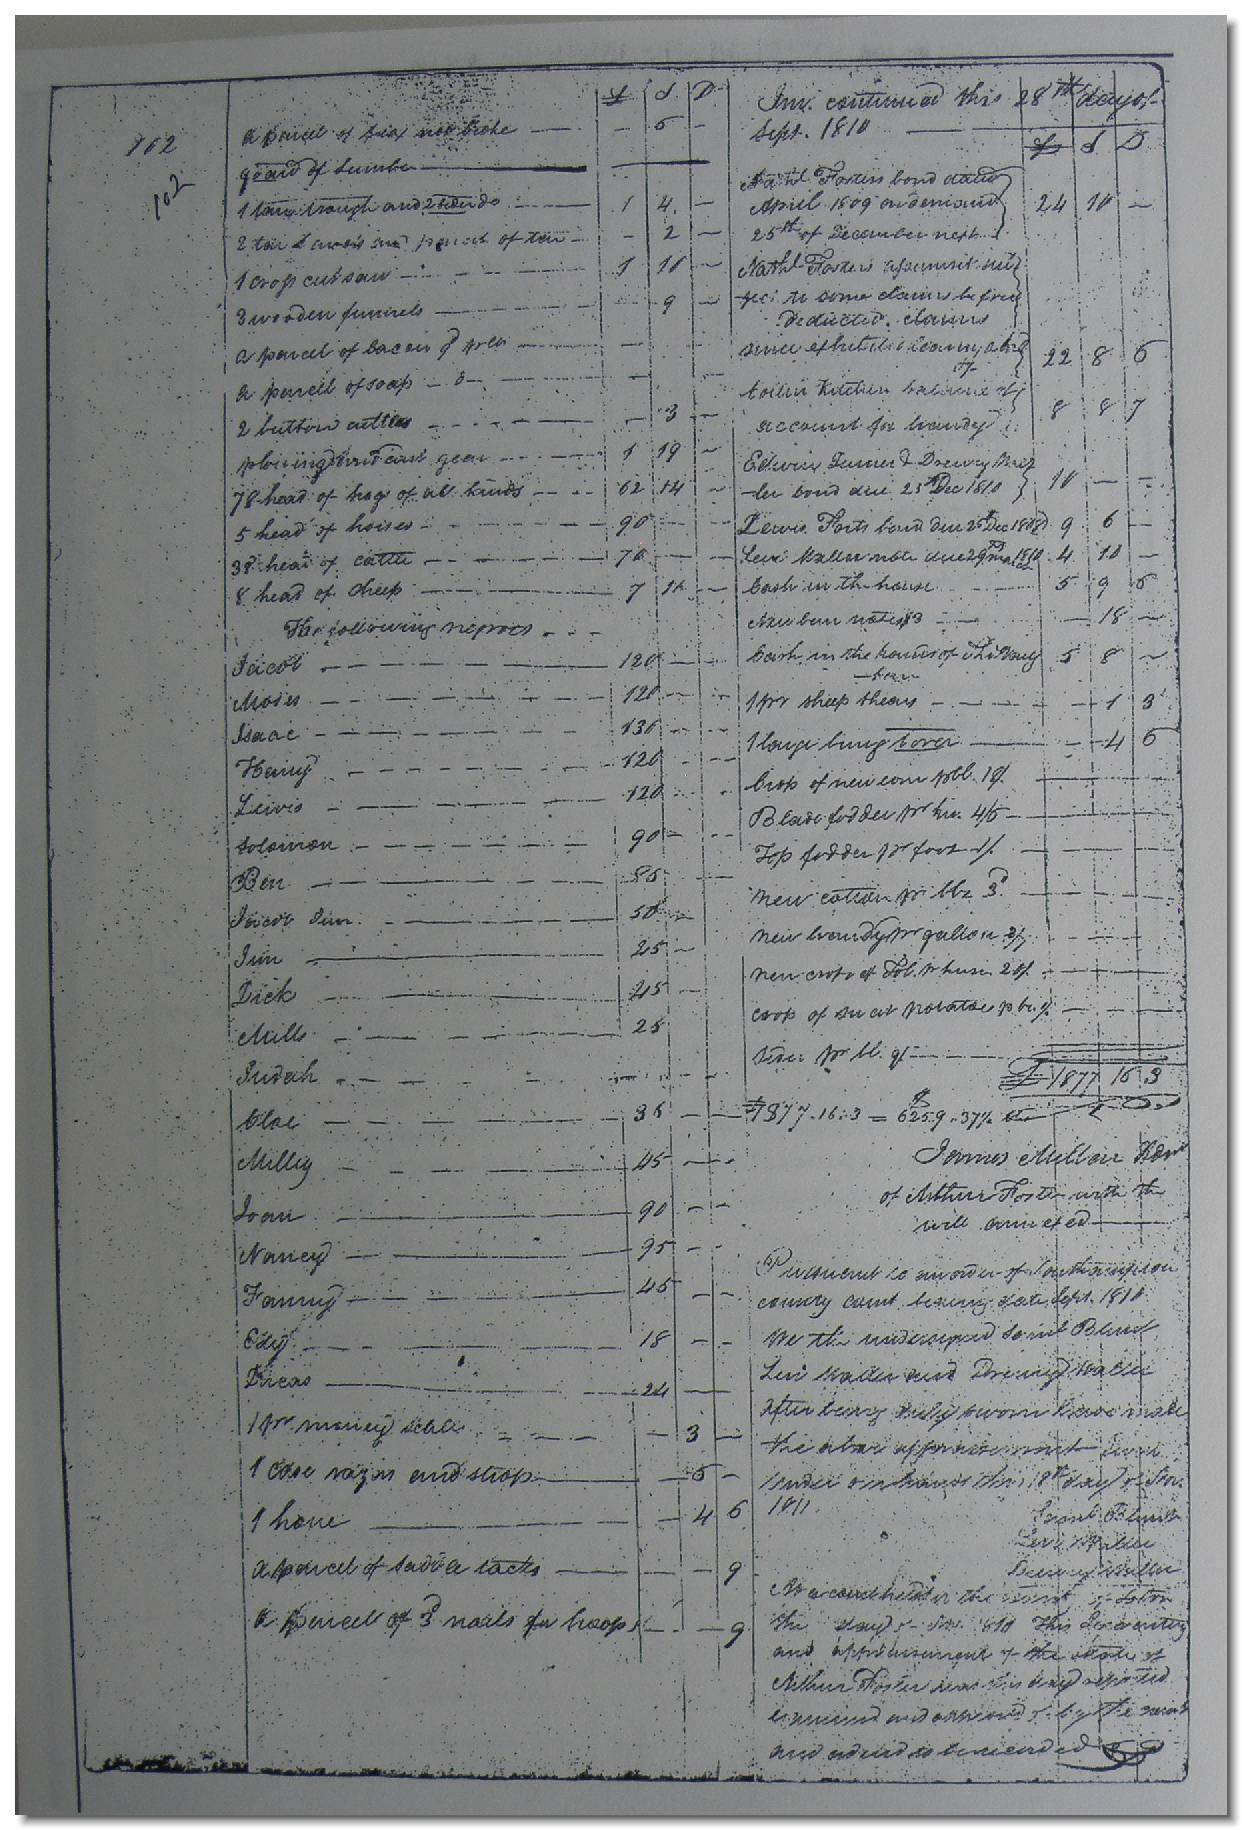 162
102
£ S D
a parcel of flax not broke — — 6
quan of lumber
1 tan trough and 2 hides do 1 4 —
2 tar barrels and parcel of tar — 2 —
1 cross cut saw 1 10 —
3 wooden funnels — 9 —
a parcel of bacon
a parcel of soap
2 button cuttles — 3 —
plowing and cart gear 1 19 —
78 head of hogs of all kinds 62 14 —
5 head of horses 90 — —
38 head of cattle 76 — —
8 head of sheep 7 16 —
The following negroes
Jacob 120 — —
Moses 120 — —
Isaac 130 — —
Henry 120 — —
Lewis 120 — —
Solomon 90 — —
Ben 85 — —
Jacob Jun. 50 —
Jim 45 —
Dick 45
Mills 25
Judah — — —
Cloe 36 — —
Milley 45 — —
Joan 90 — —
Nancy 95 — —
Fanny 45 — —
Edy 18 — —
Dicas 24 —
1 pr money scales — 3 —
1 case razors and strop — 6 —
1 hone — 4 6
a parcel of saddle tacks — — 9
a parcel of 3d nails for hoops — — 9
Inv. continued this 28th day of
Sept. 1810
£ S D
Nathl Fosters bond dated
April 1809 on demand 24 10 —
25th of December next
Nathl Fosters account sub
ject to some claims before
deducted. claims
since exhibited 22 8 6
Kitchen balance of
account for brandy 8 8 7
Edwin Turner & Drewry
bond due 25th Dec 1810 10 — —
Lewis Forts bond due 25th Dec 1808 9 6 —
Levi Waller note due 29th 1810 4 10 —
Cash in the house 5 9 6
Newbern notes $3 — 18 —
Cash in the hands of 5 8 —
1 pr sheep shears — 1 3
1 large bung borer — 4 6
Crop of new corn pr bbl. 10/
Blade fodder pr hu. 4/6
Top fodder pr foot
new cotton pr lb 3d
new brandy pr gallon
new crop of
crop of sweet potatoes
cider pr bbl. 9/
£ 1877 16 3
£1877.16.3 = $6259.37½
James Millar Admr
of Arthur Foster with the
will annexed
Pursuant to an order of Southampton
county court bearing date Sept. 1810
We the undersigned Saml Blunt,
Levi Waller and Drewry Waller
after being duly sworn have made
the above appraisement Given
under our hands this 18th day of Nov.
1811.
Saml Blunt
Levi Waller
Drewry Waller
At a court held for the county of Soton
the day of This Inventory
and appraisement of the estate of
Arthur Foster was this day reported
examined and approved of by the court
and ordered to be recorded